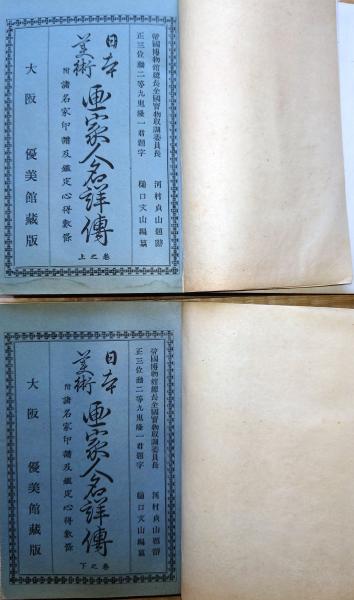 帝國博物館總長全國寳物取調委員長
正三位勳二等九鬼隆一君題字
河村貞山題辭
樋口文山編纂
日本
美術
画家人名詳傳
上之卷
附諸名家印譜及鑑定心得數條
大阪 優美館藏版
帝國博物館總長全國寳物取調委員長
正三位勳二等九鬼隆一君題字
河村貞山題辭
樋口文山編纂
日本
美術
画家人名詳傳
下之卷
附諸名家印譜及鑑定心得數條
大阪 優美館藏版